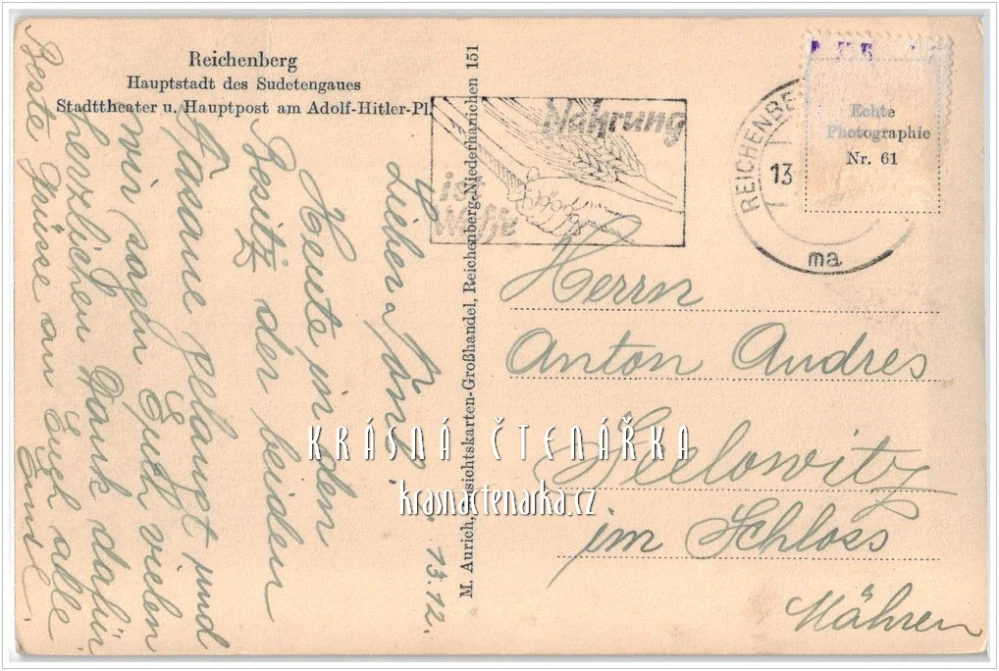 Reichenberg
Hauptstadt des Sudetengaues
Stadttheater u. Hauptpost am Adolf-Hitler-Pl.
Nahrung
ist
Waffe
REICHENBE
13
ma
Echte
Photographie
Nr. 61
M. Aurich, Ansichtskarten-Großhandel, Reichenberg-Niederhanichen 151
13.12.
Lieber
Heute in den
Besitz der beiden
Fasane gelangt und
wir sagen Euch vielen
herzlichen Dank dafür
Beste Grüsse an Euch alle
Herrn
Anton Andres
Seelowitz
im Schloss
Mähren
KRÁSNÁ ČTENÁŘKA
krasnactenarka.cz